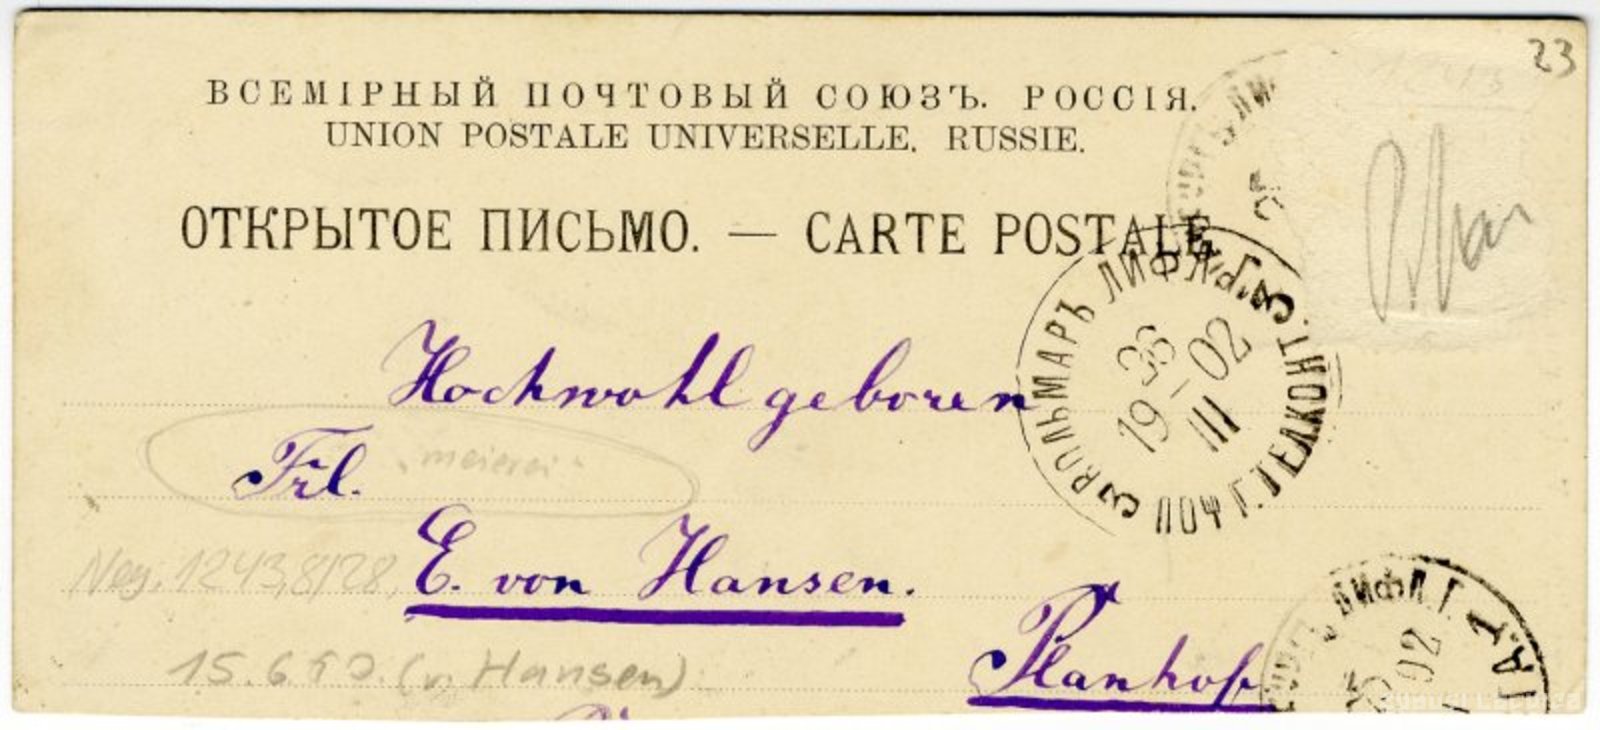 23
ВСЕМІРНЫЙ ПОЧТОВЫЙ СОЮЗЪ. РОССІЯ.
UNION POSTALE UNIVERSELLE. RUSSIE.
ОТКРЫТОЕ ПИСЬМО. — CARTE POSTALE.
ВОЛЬМАРЪ ЛИФЛ. Г.
3 ПОЧ. Г. ТЕЛ. КОНТ. 3
19 III 02
Hochwohlgeboren
Frl.
„meierei“
E. von Hansen.
Neg. 1243,8/28,
15.6.50. (v. Hansen)
Planhof
ЛИФЛ. Г.
02
1